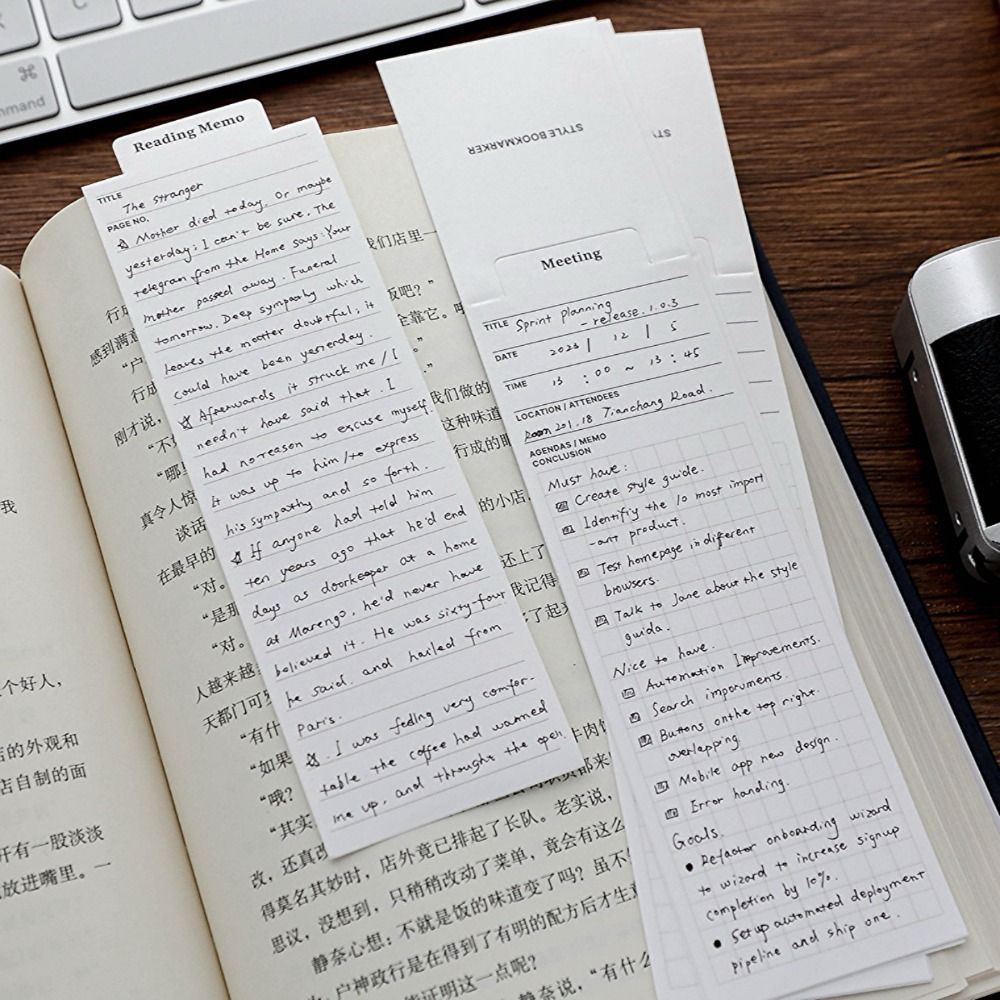 ⌘
mmand
C
Reading Memo
TITLE
The stranger
PAGE NO.
Mother died today. Or maybe
yesterday; I can't be sure. The
telegram from the Home says: Your
mother passed away. Funeral
tomorrow. Deep sympathy which
leaves the matter doubtful; it
could have been yesterday.
Afterwards it struck me / I
needn't have said that. I
had no reason to excuse myself.
It was up to him / to express
his sympathy and so forth.
If anyone had told him
ten years ago that he'd end
days as doorkeeper at a home
at Marengo, he'd never have
believed it. He was sixty-four
he said. and hailed from
Paris.
. I was feeling very comfor-
table the coffee had warmed
me up, and throught the open
STYLE BOOKMARKER
STY
Meeting
TITLE Sprint planning
- release. 1.0.3
DATE 2023 / 12 / 5
TIME 13 : 00 ~ 13 : 45
LOCATION / ATTENDEES
Room 201. 18 Tianchang Road.
AGENDAS / MEMO
CONCLUSION
Must have:
Create style guide.
Identifiy the 10 most import
-ant product.
Test homepage in different
browsers.
Talk to Jane about the style
guida.
Nice to have.
Automation Improvements.
Search imporuments.
Buttons on the top right.
overlapping.
Mobile app new design.
Error handing.
Goals.
• Refactor onboarding wizard
to wizard to increase signup
completion by 10%.
• Setup automated deployment
pipeline and ship one.
我
个好人，
店的外观和
店自制的面
开有一股淡淡
放进嘴里。一
我们店里一
行成
饭吧？”
感到满意
全靠它。
“户
行成
刚才说，
我们做的
“不
这种味道
“哪
行成的
真令人惊
谈话
的小店
在最早的
“对。
还上了
“是那
我记得
“对。
了起
人越来越
天都门可
“有什
牛肉饭
“如果
“哦？
“其实
还真
店外竟已排起了长队。老实说，
改，
得莫名其妙时，只稍稍改动了菜单，竟会有这么
思议，没想到，
静奈心想：不就是饭的味道变了吗？虽不
户神政行是在得到了有明的配方后才生意
能证明这一点呢？
静奈说，“有什么